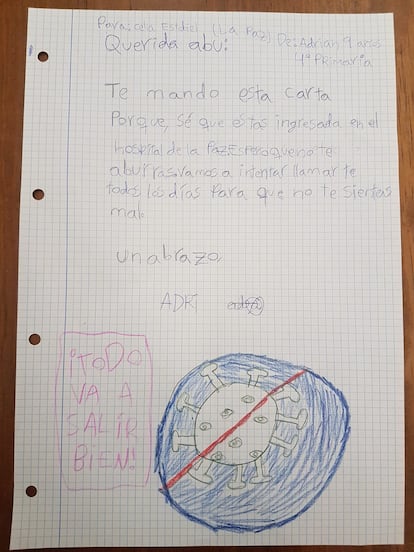 Para: cela Estdiel (La Paz) De: Adrian 9 años
4º Primaria
Querida abu:
Te mando esta carta
Porque, sé que estas ingresada en el
hospital de la Paz. Espero que no te
aburras. vamos a intentar llamar te
todos los días Para que no te sientas
mal.
un abrazo,
ADRI
¡TODO
VA A
SALIR
BIEN!